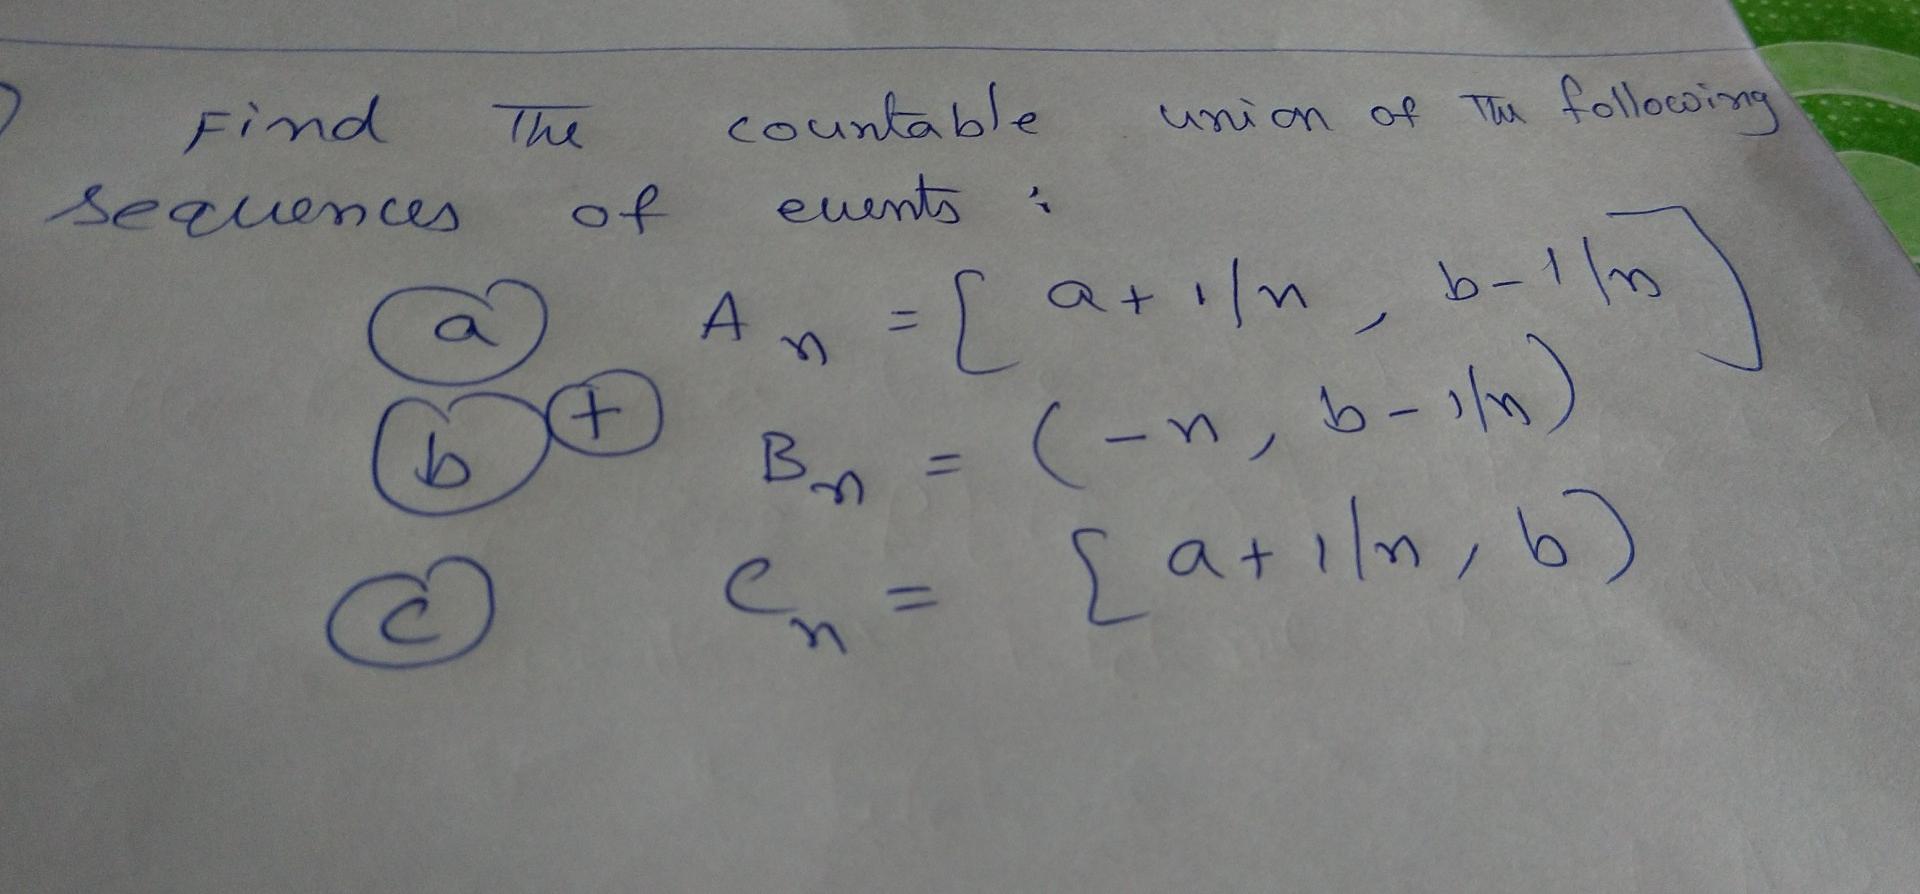 ) Find The countable union of The following
sequences of events :
(a) An = [ a + 1/n , b - 1/n ]
(b) + Bn = ( -n , b - 1/n )
(c) Cn = [ a + 1/n , b )